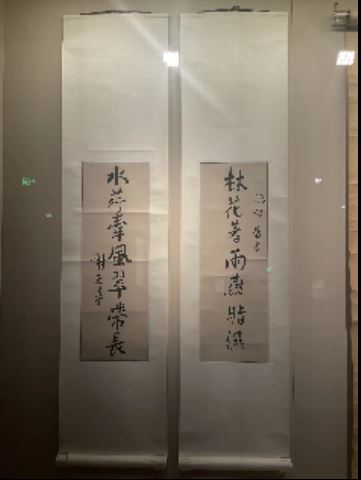 林花著雨燕脂濕
水荇牽風翠帶長
謝无量